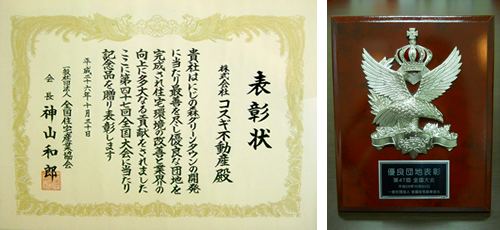 表彰状
株式会社 コスギ不動産 殿
貴社はにじの森グリーンタウンの開発
に当たり最善を尽し優良な団地を
完成され住宅環境の改善と業界の
向上に多大なる貢献をされました
ここに第四十七回全国大会に当たり
記念品を贈り表彰します
平成二十六年十月三十日
一般社団法人 全国住宅産業協会
会長 神山和郎
優良団地表彰
第47回 全国大会